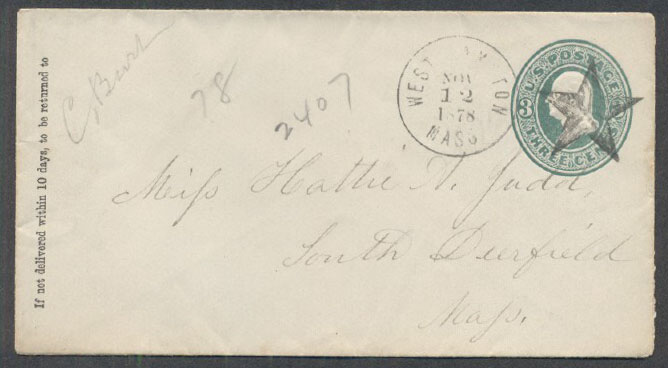 If not delivered within 10 days, to be returned to
C, Burt
78
2407
WEST TON
NOV
12
1878
MASS
U.S. POSTAGE
3
THREE CENTS
Miss Hattie A. Judd,
South Deerfield
Mass.